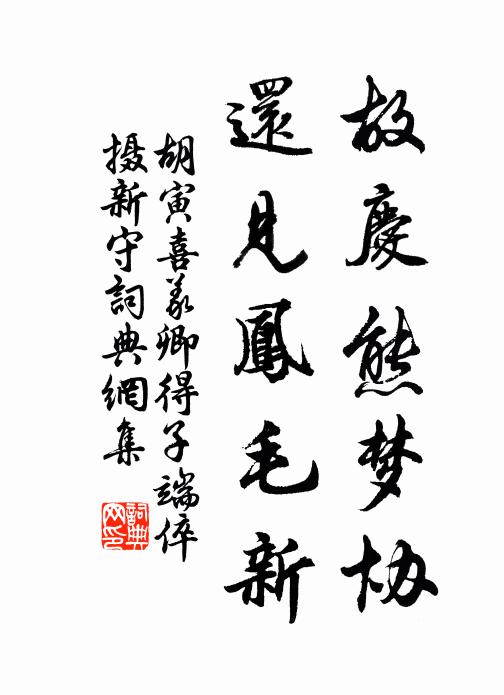 故慶熊梦协
還見鳳毛新
胡寅喜義卿得子端倅
摄新守詞典網集
詞典网印